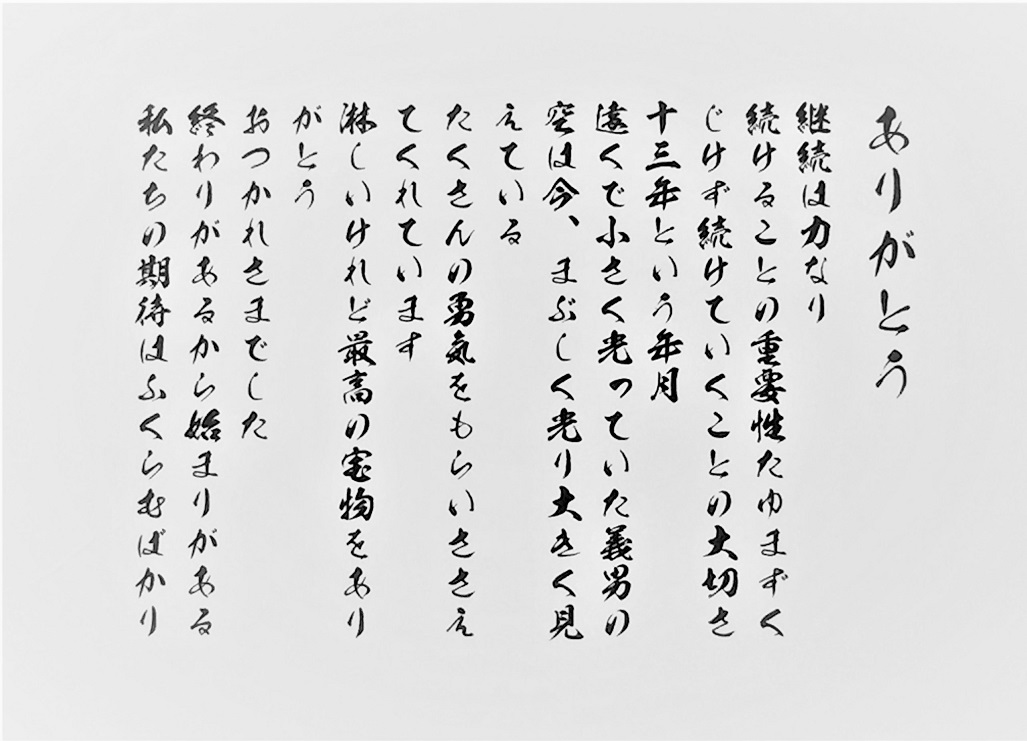 ありがとう
継続は力なり
続けることの重要性たゆまずく
じけず続けていくことの大切さ
十三年という年月
遠くで小さく光っていた義男の
空は今、まぶしく光り大きく見
えている
たくさんの勇気をもらいささえ
てくれています
淋しいけれど最高の宝物をあり
がとう
おつかれさまでした
終わりがあるから始まりがある
私たちの期待はふくらむばかり